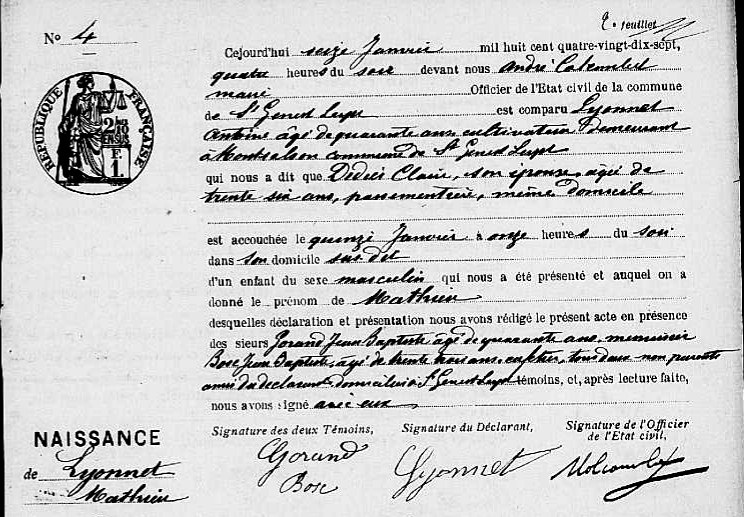 2. feuillet
No 4
Cejourd'hui seize Janvier mil huit cent quatre-vingt-dix-sept,
quatre heures du soir devant nous André
maire Officier de l'Etat civil de la commune
de St Genest Lerpt est comparu Lyonnet
Antoine âgé de quarante ans cultivateur Demeurant
à Montsalson commune de St Genest Lerpt
qui nous a dit que Claire, son épouse, âgée de
trente six ans, passementière, même domicile
est accouchée le quinze Janvier à onze heures du soir
dans son domicile sus dit
d'un enfant du sexe masculin qui nous a été présenté et auquel on a
donné le prénom de Mathieu
desquelles déclaration et présentation nous avons rédigé le présent acte en présence
des sieurs Gorand Jean Baptiste âgé de quarante ans, menuisier
Bose Jean Baptiste, âgé de trente trois ans, tous deux non parents
amis du déclarant domiciliés à St Genest Lerpt témoins, et, après lecture faite,
nous avons signé avec eux
Signature des deux Témoins, Signature du Déclarant, Signature de l'Officier
de l'Etat civil,
Gorand Lyonnet
Bose
NAISSANCE
de Lyonnet
Mathieu
REPUBLIQUE FRANÇAISE